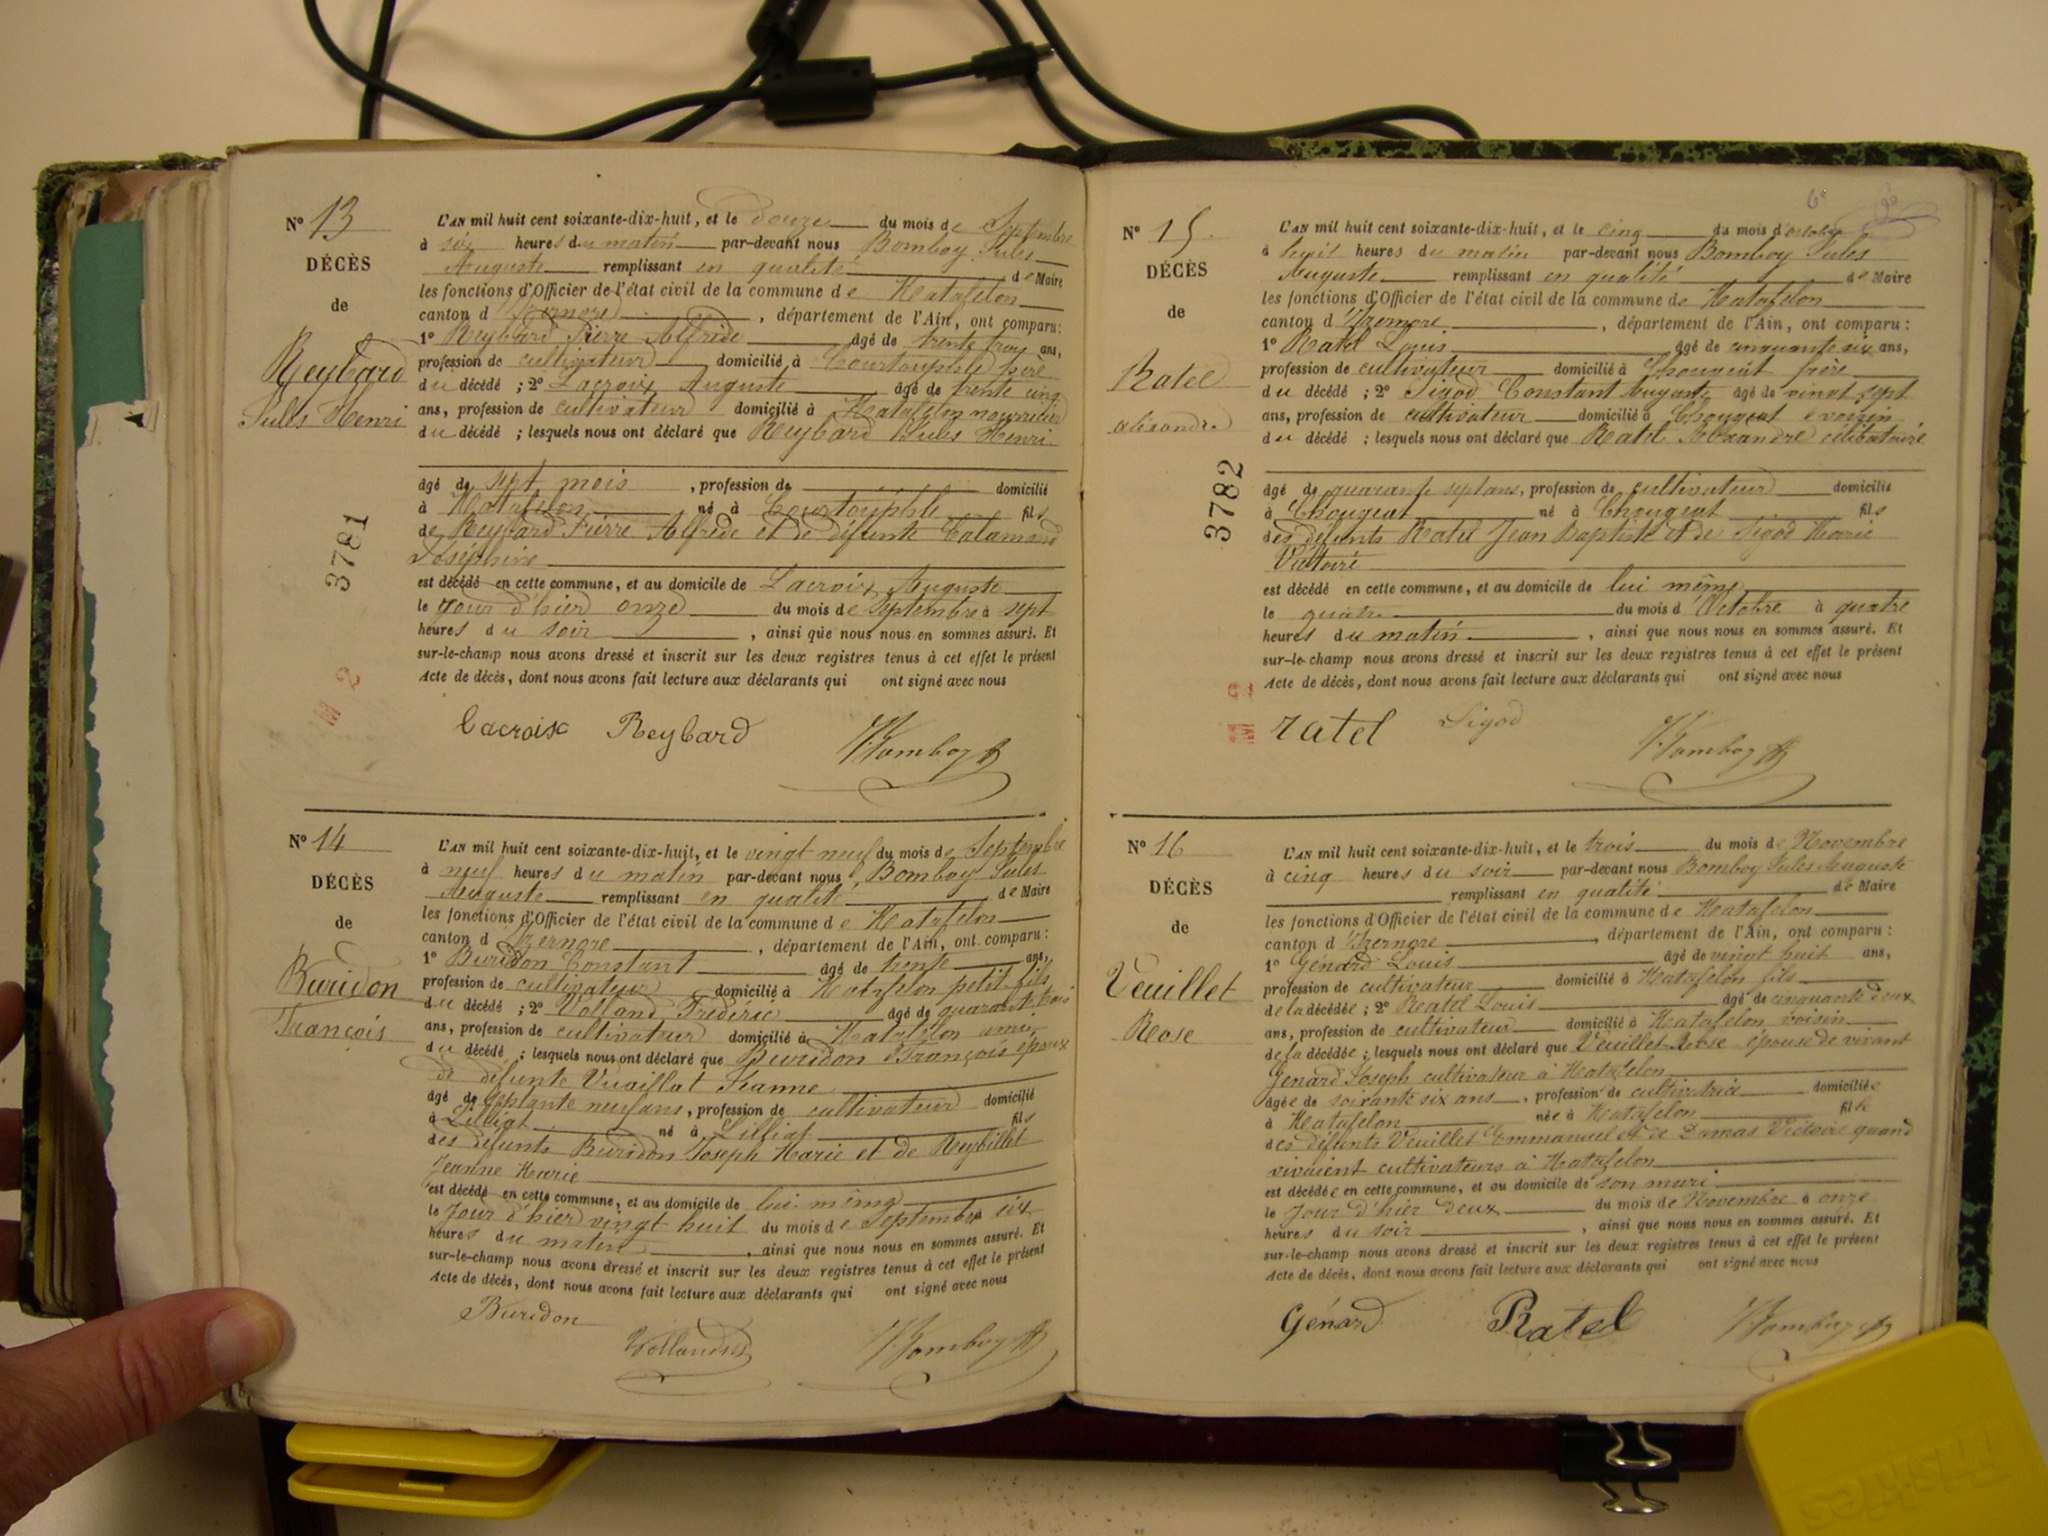 N° 13
DÉCÈS
de
Reybard
Jules Henri
L'AN mil huit cent soixante-dix-huit, et le douze du mois de Septembre
à six heures du matin par-devant nous Bomboy Jules
Auguste remplissant en qualité de Maire
les fonctions d'Officier de l'état civil de la commune de Matafelon
canton d'Izernore, département de l'Ain, ont comparu:
1° Reybard Pierre Alfrède âgé de trente trois ans,
profession de cultivateur domicilié à Courtouphle père
du décédé ; 2° Lacroix Auguste âgé de trente cinq
ans, profession de cultivateur domicilié à Matafelon nourricier
du décédé ; lesquels nous ont déclaré que Reybard Jules Henri
âgé de sept mois, profession de domicilié
à Matafelon né à Courtouphle fils
de Reybard Pierre Alfrède et de défunte Calamand
Joséphine
est décédé en cette commune, et au domicile de Lacroix Auguste
le jour d'hier onze du mois de Septembre à sept
heures du soir, ainsi que nous nous en sommes assuré. Et
sur-le-champ nous avons dressé et inscrit sur les deux registres tenus à cet effet le présent
Acte de décès, dont nous avons fait lecture aux déclarants qui ont signé avec nous
Lacroix Reybard Bomboy
3781
2 M
N° 14
DÉCÈS
de
Buridon
François
L'AN mil huit cent soixante-dix-huit, et le vingt neuf du mois de Septembre
à neuf heures du matin par-devant nous Bomboy Jules
Auguste remplissant en qualité de Maire
les fonctions d'Officier de l'état civil de la commune de Matafelon
canton d'Izernore, département de l'Ain, ont comparu:
1° Buridon Constant âgé de trente ans,
profession de cultivateur domicilié à Matafelon petit fils
du décédé ; 2° Volland Frédéric âgé de quarante trois
ans, profession de cultivateur domicilié à Matafelon ami
du décédé ; lesquels nous ont déclaré que Buridon François époux
de défunte Vuaillat Jeanne
âgé de septante neuf ans, profession de cultivateur domicilié
à Lilliat né à Lilliat fils
des défunts Buridon Joseph Marie et de Reybillet
Jeanne Marie
est décédé en cette commune, et au domicile de lui même
le jour d'hier vingt huit du mois de Septembre à six
heures du matin, ainsi que nous nous en sommes assuré. Et
sur-le-champ nous avons dressé et inscrit sur les deux registres tenus à cet effet le présent
Acte de décès, dont nous avons fait lecture aux déclarants qui ont signé avec nous
Buridon Volland Bomboy
6e
N° 15
DÉCÈS
de
Ratel
alexandre
L'AN mil huit cent soixante-dix-huit, et le cinq du mois d'octobre
à huit heures du matin par-devant nous Bomboy Jules
Auguste remplissant en qualité de Maire
les fonctions d'Officier de l'état civil de la commune de Matafelon
canton d'Izernore, département de l'Ain, ont comparu:
1° Ratel Louis âgé de cinquante six ans,
profession de cultivateur domicilié à Chougeat frère
du décédé ; 2° Sigod Constant Auguste âgé de vingt sept
ans, profession de cultivateur domicilié à Chougeat voisin
du décédé ; lesquels nous ont déclaré que Ratel Alexandre célibataire
âgé de quarante sept ans, profession de cultivateur domicilié
à Chougeat né à Chougeat fils
des défunts Ratel Jean Baptiste et de Sigod Marie
Victoire
est décédé en cette commune, et au domicile de lui même
le quatre du mois d'Octobre à quatre
heures du matin, ainsi que nous nous en sommes assuré. Et
sur-le-champ nous avons dressé et inscrit sur les deux registres tenus à cet effet le présent
Acte de décès, dont nous avons fait lecture aux déclarants qui ont signé avec nous
ratel Sigod Bomboy
3782
N° 16
DÉCÈS
de
Veuillet
Rose
L'AN mil huit cent soixante-dix-huit, et le trois du mois de Novembre
à cinq heures du soir par-devant nous Bomboy Jules Auguste
remplissant en qualité de Maire
les fonctions d'Officier de l'état civil de la commune de Matafelon
canton d'Izernore, département de l'Ain, ont comparu:
1° Génard Louis âgé de vingt huit ans,
profession de cultivateur domicilié à Matafelon fils
de la décédée ; 2° Ratel Louis âgé de cinquante deux
ans, profession de cultivateur domicilié à Matafelon voisin
de la décédée ; lesquels nous ont déclaré que Veuillet Rose épouse de vivant
Génard Joseph cultivateur à Matafelon
âgée de soixante six ans, profession de cultivatrice domiciliée
à Matafelon née à Matafelon fille
des défunts Veuillet Emmanuel et de Dumas Victoire quand
vivaient cultivateurs à Matafelon
est décédée en cette commune, et au domicile de son mari
le jour d'hier deux du mois de Novembre à onze
heures du soir, ainsi que nous nous en sommes assuré. Et
sur-le-champ nous avons dressé et inscrit sur les deux registres tenus à cet effet le présent
Acte de décès, dont nous avons fait lecture aux déclarants qui ont signé avec nous
Génard Ratel Bomboy